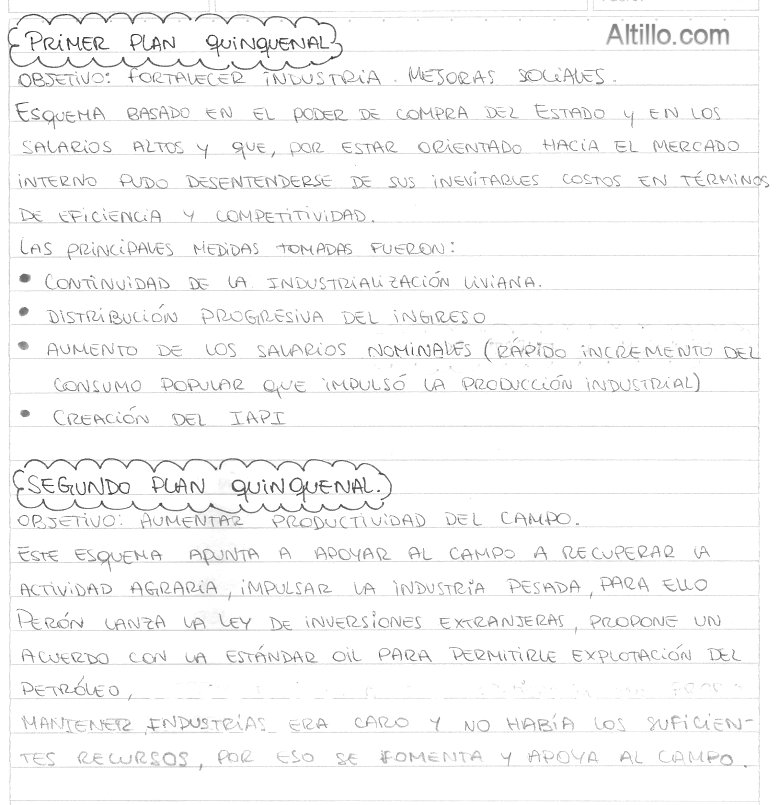 Altillo.com
PRIMER PLAN QUINQUENAL
OBJETIVO: FORTALECER INDUSTRIA. MEJORAS SOCIALES.
ESQUEMA BASADO EN EL PODER DE COMPRA DEL ESTADO Y EN LOS
SALARIOS ALTOS Y QUE, POR ESTAR ORIENTADO HACIA EL MERCADO
INTERNO PUDO DESENTENDERSE DE SUS INEVITABLES COSTOS EN TÉRMINOS
DE EFICIENCIA Y COMPETITIVIDAD.
LAS PRINCIPALES MEDIDAS TOMADAS FUERON:
• CONTINUIDAD DE LA INDUSTRIALIZACIÓN LIVIANA.
• DISTRIBUCIÓN PROGRESIVA DEL INGRESO
• AUMENTO DE LOS SALARIOS NOMINALES (RÁPIDO INCREMENTO DEL
CONSUMO POPULAR QUE IMPULSÓ LA PRODUCCIÓN INDUSTRIAL)
• CREACIÓN DEL IAPI
SEGUNDO PLAN QUINQUENAL.
OBJETIVO: AUMENTAR PRODUCTIVIDAD DEL CAMPO.
ESTE ESQUEMA APUNTA A APOYAR AL CAMPO A RECUPERAR LA
ACTIVIDAD AGRARIA, IMPULSAR LA INDUSTRIA PESADA, PARA ELLO
PERÓN LANZA LA LEY DE INVERSIONES EXTRANJERAS, PROPONE UN
ACUERDO CON LA ESTÁNDAR OIL PARA PERMITIRLE EXPLOTACIÓN DEL
PETRÓLEO,
MANTENER INDUSTRIAS ERA CARO Y NO HABÍA LOS SUFICIEN-
TES RECURSOS, POR ESO SE FOMENTA Y APOYA AL CAMPO.